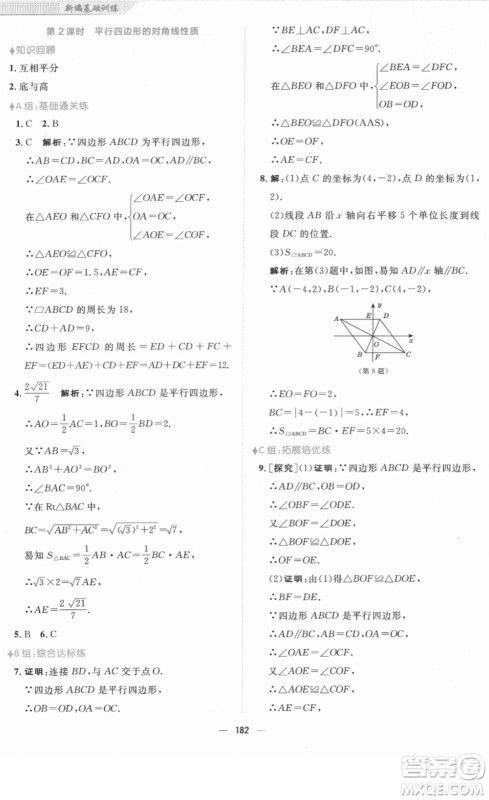 新编基础训练
第2课时 平行四边形的对角线性质
知识回顾
1. 互相平分
2. 底与高
A组:基础通关练
1. C 2. B
3. C 解析:∵四边形 ABCD 为平行四边形,
∴AB=CD,BC=AD,OA=OC,
∴∠OAE=∠OCF,
在△AEO 和△CFO 中, { ∠OAE=∠OCF, OA=OC, ∠AOE=∠COF,
∴△AEO≌△CFO,
∴OE=OF=1.5,AE=CF,
∴EF=3.
∵□ABCD 的周长为 18,
∴AD+CD=9,
∴四边形 EFCD 的周长=ED+CD+CF+
EF=(ED+AE)+CD+EF=AD+CD+EF=12.
4. 2√21/7 解析:∵四边形 ABCD 是平行四边形,
∴AO=1/2 AC=1,BO=1/2 BD=2.
又∵AB=√3,
∴AB²+AO²=BO²,
∴∠BAC=90°.
∵在 Rt△BAC 中,
BC=√(AB²+AC²)=√((√3)²+2²)=√7,
易知 S△BAC=1/2 AB·AC=1/2 BC·AE,
∴√3×2=√7 AE,
∴AE=2√21/7.
5. B 6. C
B组:综合达标练
7. 证明:连接 BD,与 AC 交于点 O.
∵四边形 ABCD 是平行四边形,
∴OB=OD.
∵BE⊥AC,DF⊥AC,
∴∠BEA=∠DFC=90°.
在△OBE 和△ODF 中, { ∠BEA=∠DFC, ∠EOB=∠FOD, OB=OD,
∴△OBE≌△ODF(AAS),
∴OE=OF.
8. 解:(1)点 C 的坐标为(4,-2),点 D 的坐标为
(1,2).
(2)线段 AB 沿 x 轴向右平移 5 个单位长度到线
段 DC 的位置.
(3)S□ABCD=20.
解析:在第(3)题中,如图,易知 AD∥x 轴∥BC.
∵A(-4,2),B(-1,-2),C(4,-2),
y
A E D
O x
B F C
(第8题)
∴EO=OF=2,
BC=|4-(-1)|=5,
∴S□ABCD=BC·EF=5×4=20.
C组:拓展培优练
9. [探究](1)证明:∵四边形 ABCD 是平行四边形,
∴AD∥BC,OB=OD,
∴∠OBF=∠ODE.
又∵∠BOF=∠DOE,
∴△BOF≌△DOE,
∴OF=OE.
(2)证明:由(1)得△BOF≌△DOE,
∴BF=DE.
∵四边形 ABCD 是平行四边形,
∴AD=BC,OA=OC,
∴AE=CF,∠OAE=∠OCF,
182
答案圈
MXQE.COM